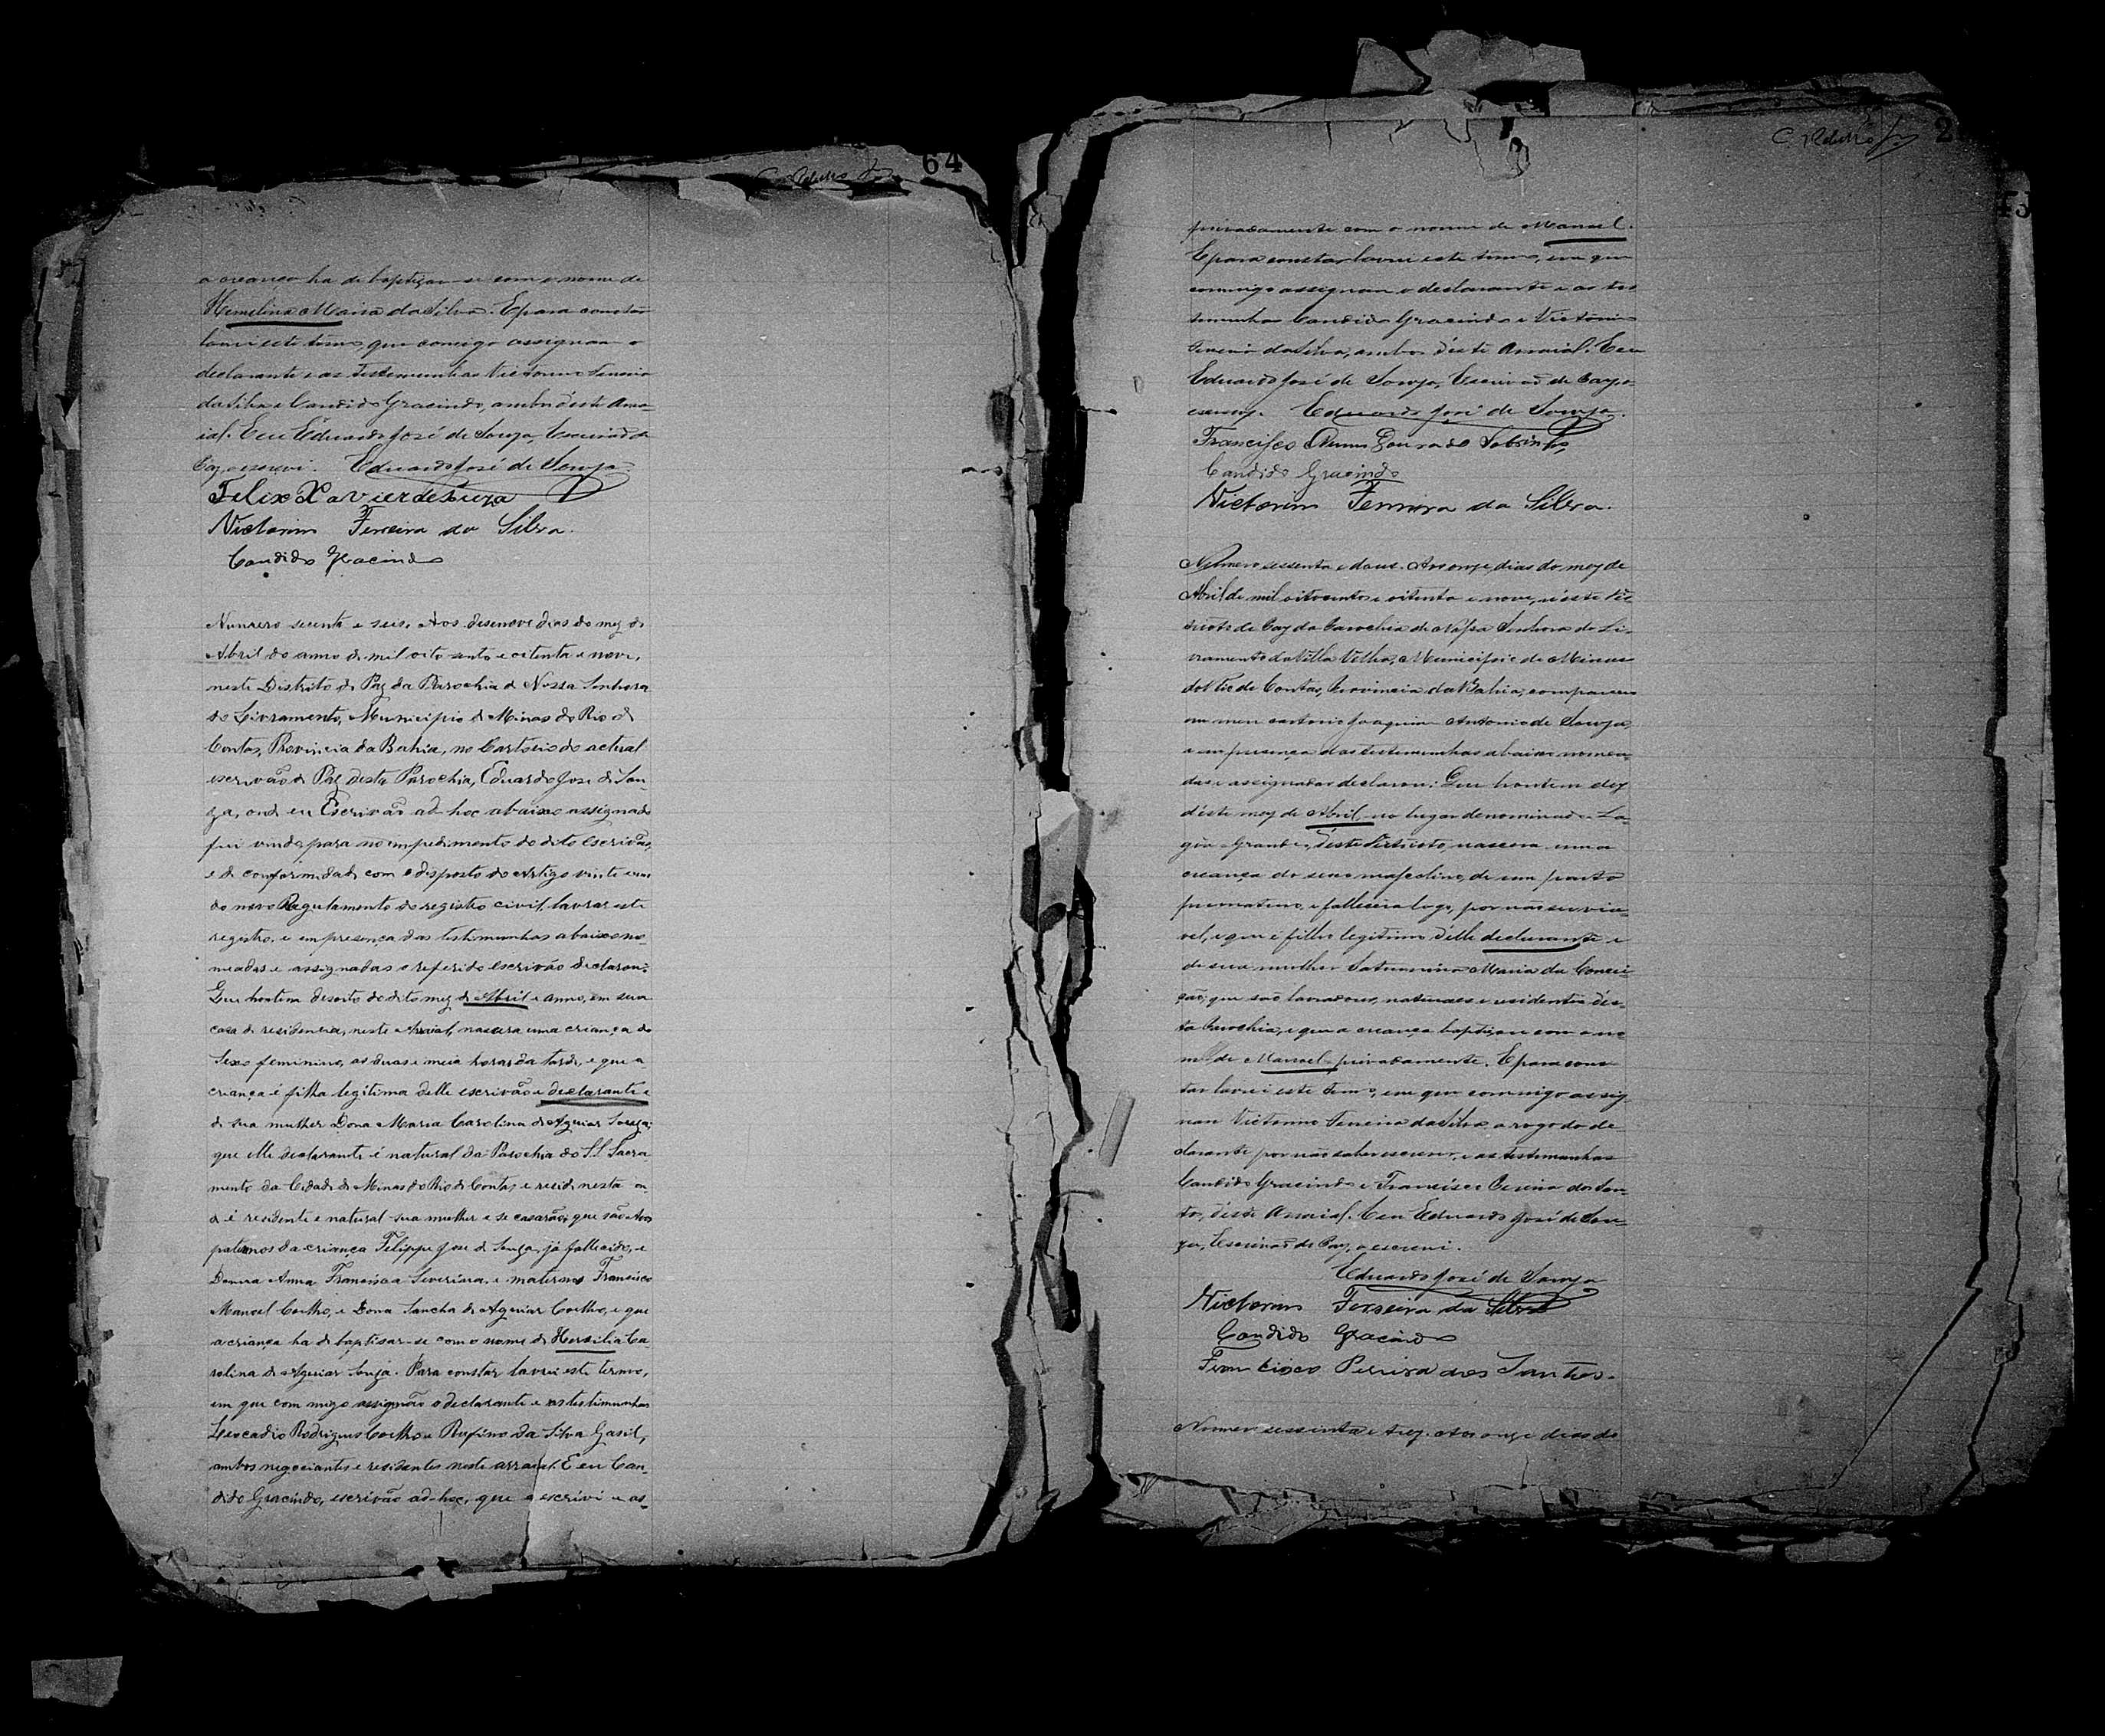 64
a creança ha de baptizar-se com o nome de
Hemelina Maria da Silva. E para constar
lavrei este termo, que comigo assignam o
declarante e as testemunhas Victorino Ferreira
da Silva e Candido Gracindo, ambos d'este Arra-
ial. E eu Eduardo José de Souza, Escrivão de
Paz, o escrevi. Eduardo José de Souza.
Felix Xavier de Souza
Victorino Ferreira da Silva.
Candido Gracindo
Numero secenta e seis. Aos desenove dias do mez de
Abril do anno de mil oito cento e oitenta e nove,
neste Distrito de Paz da Parochia de Nossa Senhora
do Livramento, Municipio de Minas do Rio de
Contas, Provincia da Bahia, no Cartorio do actual
escrivão de Paz desta Parochia, Eduardo Jose de Sou-
za, onde eu Escrivão ad-hoc abaixo assignado
fui vindo para no impedimento do dito escrivão,
e de conformidade com o disposto do Artigo vinte e um
do novo Regulamento do registro civil, lavrar este
registro, e em presença das testimunhas abaixo no-
meadas e assignadas o referido escrivão declarou:
Que hontem desoito do dito mez de Abril e anno, em sua
casa de residencia, neste Arraial, nascera uma criança do
Sexo feminino, as duas e meia horas da tarde, e que a
criança é filha legitima delle escrivão e declarante e
de sua mulher Dona Maria Carolina de Aguiar Souza;
que elle declarante é natural da Parochia do S.S. Sacra-
mento da Cidade de Minas do Rio de Contas, e reside nesta on-
de é residente e natural sua mulher e se casarão; que são Avos
paternos da criança Filippe Jose de Souza, já fallecido, e
Donna Anna Francisca Severiana, e maternos Francisco
Manoel Coelho, e Dona Sancha de Aguiar Coelho, e que
a criança ha de baptisar-se com o nome de Hersilia Ca-
rolina de Aguiar Souza. Para constar lavrei este termo,
em que com migo assignão o declarante e as testimunhas
Leocadio Rodrigues Coelho e Rufino da Silva Gasil,
ambos negociantes e residentes neste arraial. E eu Can-
dido Gracindo, escrivão ad-hoc, que o escrivi e as-
2
privadamente com o nome de Manoel.
E para constar lavrei este termo, em que
commigo assignam o declarante e as tes
temunhas Candido Gracindo e Victorino
Ferreira da Silva, ambos d'este Arraial. E eu
Eduardo José de Souza, Escrivão de Paz, o
escrevi. Eduardo José de Souza.
Francisco Nunes Dourado Sobrinho,
Candido Gracindo
Victorino Ferreira da Silva.
Numero sessenta e dous. Aos onze dias do mez de
Abril de mil oitocentos e oitenta e nove, n'este Dis
tricto de Paz da Parochia de Nossa Senhora do Li-
vramento da Villa Velha, Municipio de Minas
do Rio de Contas, Provincia da Bahia, compareceu
em meu cartorio Joaquim Antonio de Souza,
e em presença das testemunhas abaixo nomea-
das e assignadas declarou: Que hontem dez
d'este mez de Abril no lugar denominado La-
gôa Grande, d'este Districto nascera uma
creança do sexo masculino, de um parto
prematuro, e fallecera logo, por não ser via-
vel, e que é filho legitimo d'elle declarante e
de sua mulher Saturnina Maria da Concei-
ção; que são lavradores, naturaes e residentes des-
ta Parochia, e que a creança baptizou com o no
me de Manoel privadamente. E para cons-
tar lavrei este termo, em que commigo assig-
nam Victorino Ferreira da Silva a rogo do de-
clarante por não saber escrever, e as testemunhas
Candido Gracindo e Francisco Pereira dos San-
tos, deste Arraial. E eu Eduardo José de Sou-
za, Escrivão de Paz, o escrevi.
Eduardo José de Souza
Victorino Ferreira da Silva
Candido Gracindo
Francisco Pereira dos Santos.
Numero sessenta e trez. Aos onze dias do